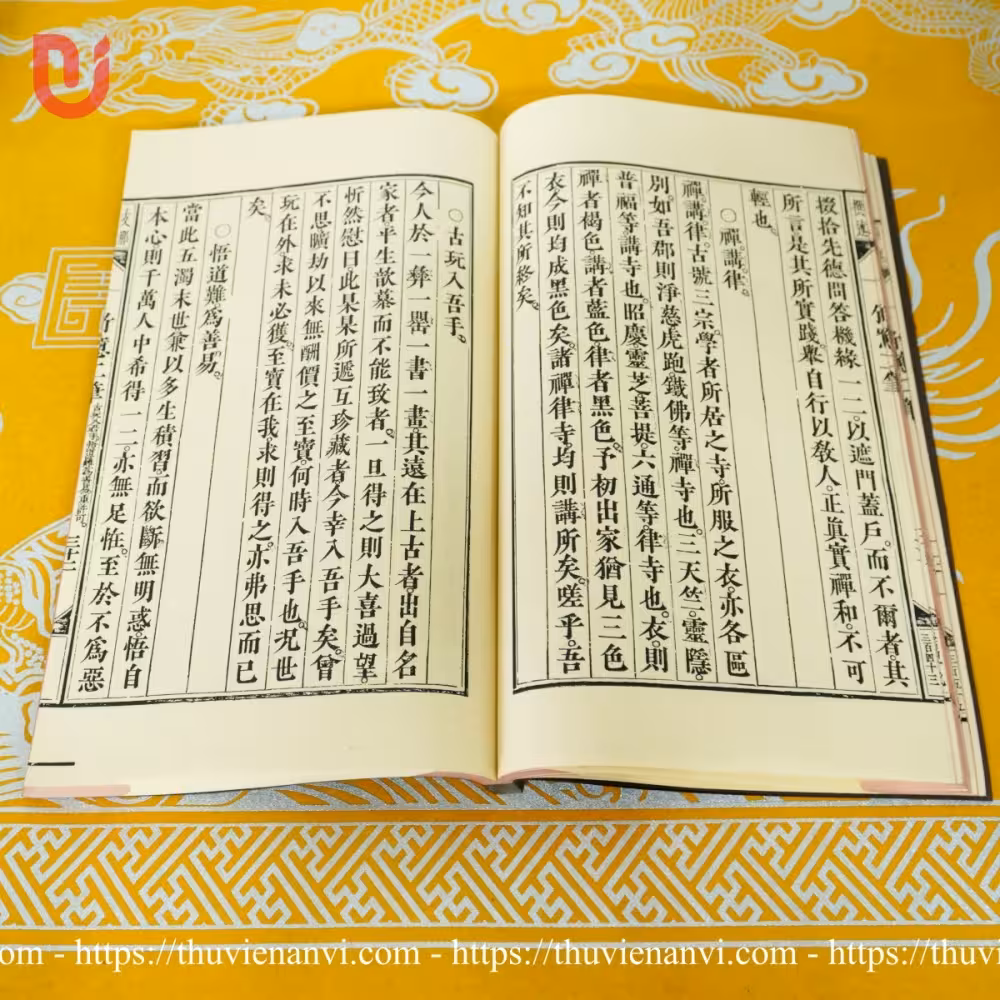 掇拾先德問答機緣一二。以遮門蓋戶。而不爾者。其
所言是其所實踐。舉自行以敎人。正眞實禪和。不可
輕也。
○禪。講。律。
禪。講。律。古號三宗。學者所居之寺。所服之衣。亦各區
別。如吾郡則淨慈虎跑鐵佛等。禪寺也。三天竺。靈隱。
普福等。講寺也。昭慶靈芝菩提。六通等。律寺也。衣。則
禪者褐色。講者藍色。律者黑色。予初出家。猶見三色
衣。今則均成黑色矣。諸禪律寺。均則講所矣。嗟乎。吾
不知其所終矣。
三百四十三
○古玩入吾手。
今人於一彝一罍一書一畫。其遠在上古者。出自名
家者。平生歆慕而不能致者。一旦得之。則大喜過望。
忻然慰曰。此某某所遞互珍藏者。今幸入吾手矣。曾
不思曠劫以來。無酬價之至寶。何時入吾手也。況世
玩在外。求未必獲。至寶在我。求則得之。亦弗思而已
矣。
○悟道難爲善易。
當此五濁末世。兼以多生積習。而欲斷無明惑。悟自
本心。則千萬人中希得一二。亦無足怪。至於不爲惡
三十二
U
.com - https://thuvienanvi.com - https://thuvienanvi.com - https://th